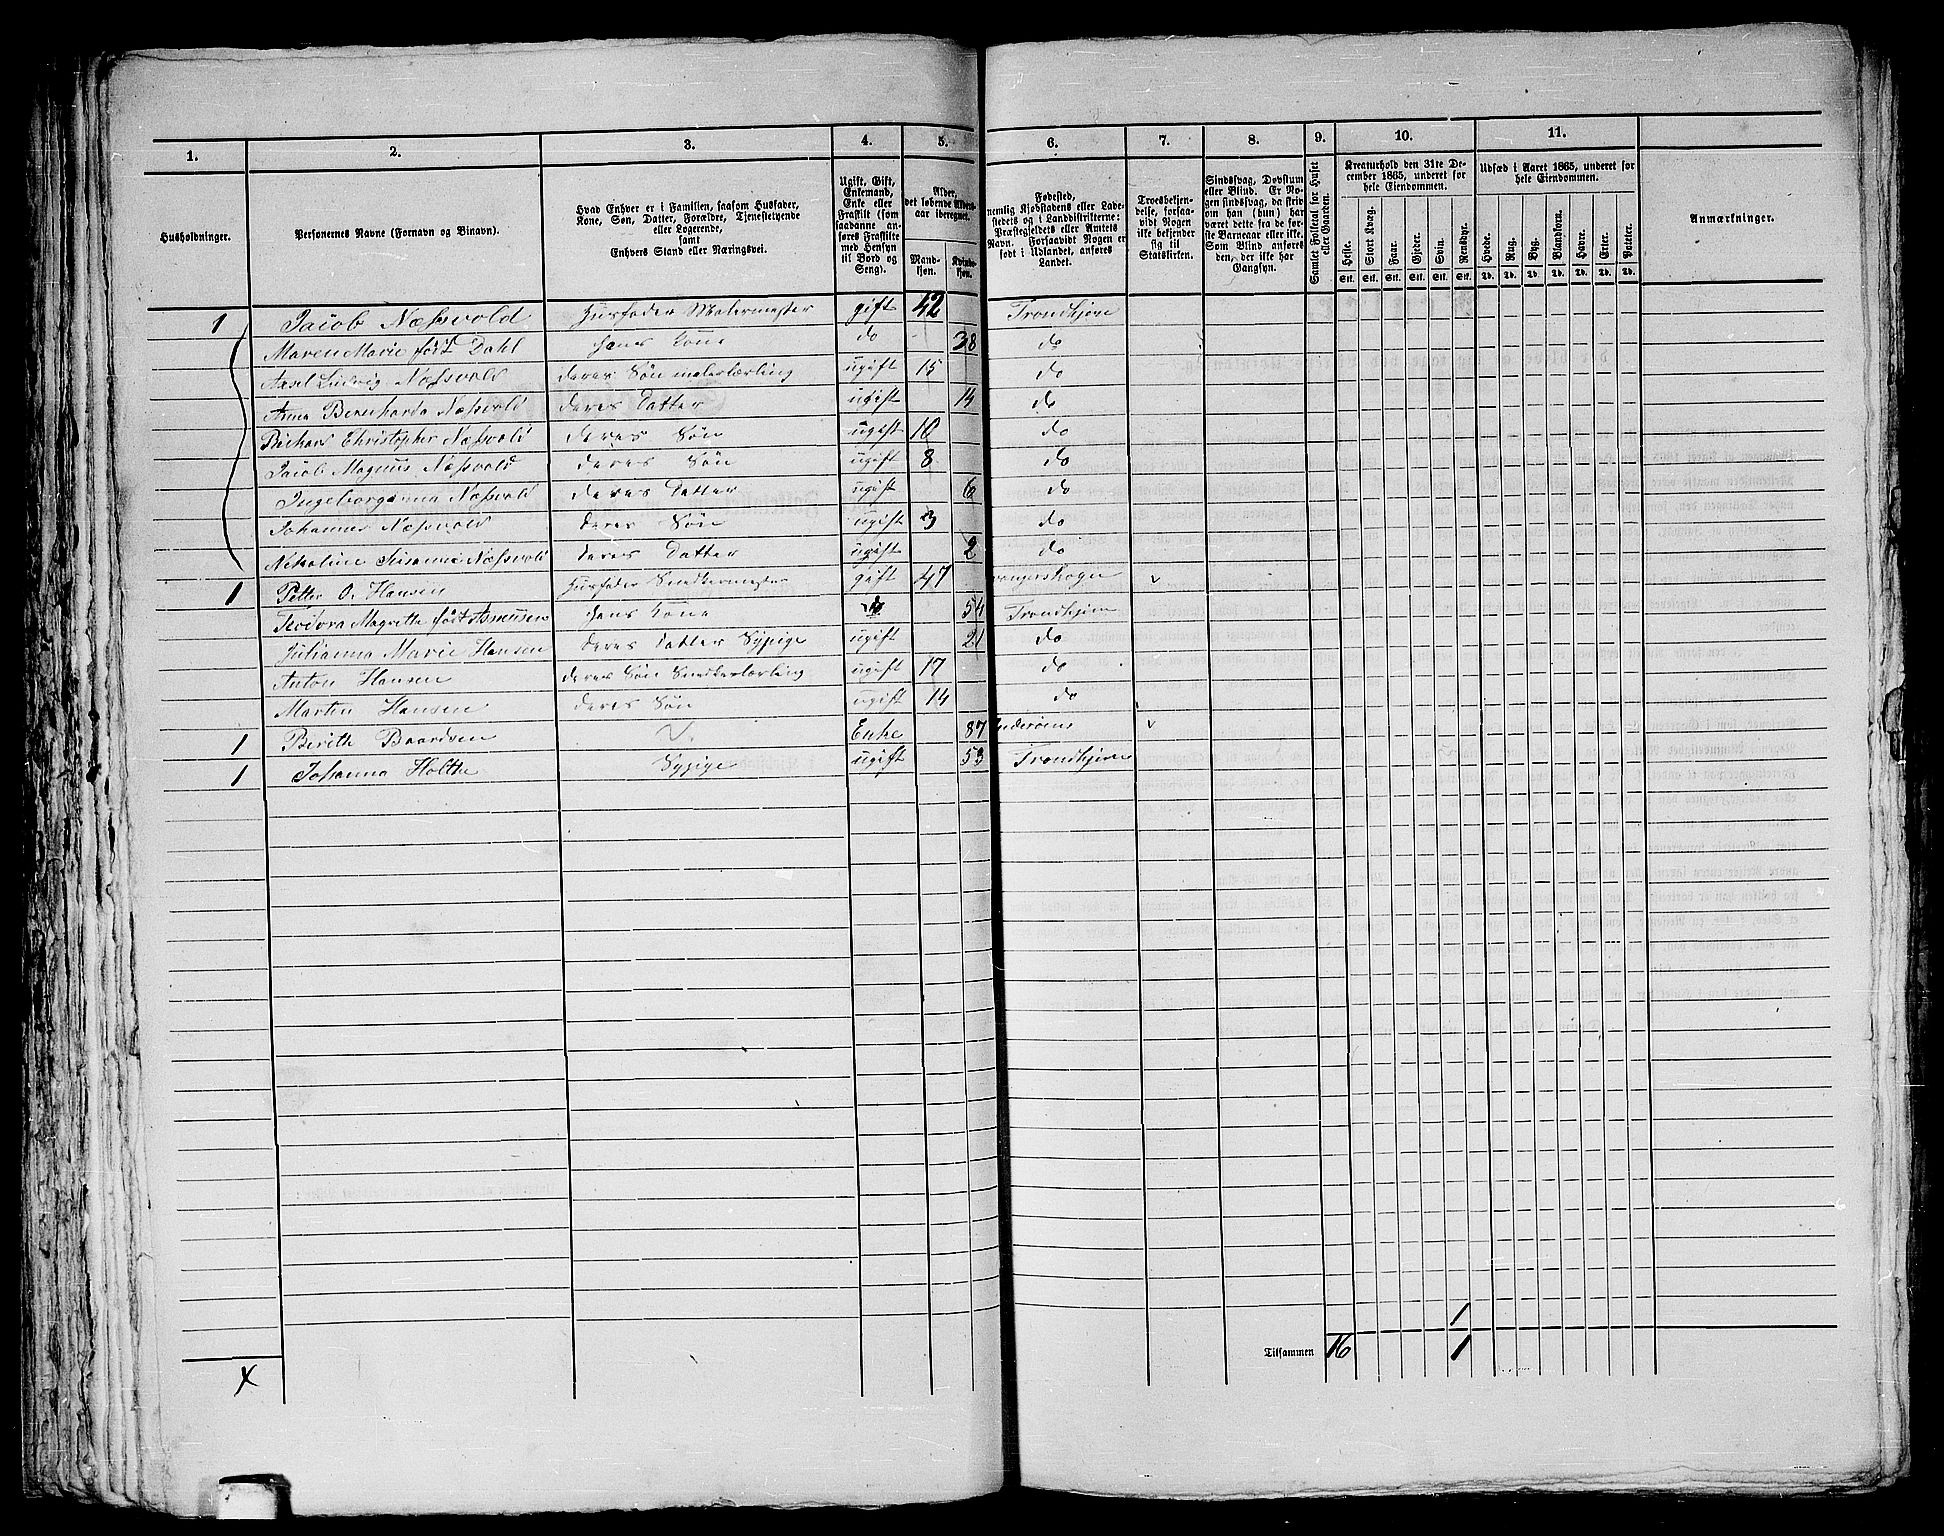 1. 2. 3. 4. 5. 6. 7. 8. 9. 10. 11.
Husholdninger.
Personernes Navne (Fornavn og Binavn).
Hvad Enhver er i Familien, saasom Husfader,
Kone, Søn, Datter, Forældre, Tjenestetyende
eller Logerende,
samt
Enhvers Stand eller Næringsvei.
Ugift, Gift,
Enkemand,
Enke eller
Fraskilt (som
saadanne an-
føres Fraskilte
med Hensyn
til Bord og
Seng).
Alder,
det løbende Alders-
aar iberegnet.
Mand-
kjøn.
Kvinde-
kjøn.
Fødested,
nemlig Kjøbstadens eller Lade-
stedets og i Landdistrikterne:
Præstegjeldets eller Amtets
Navn. Forsaavidt Nogen er
født i Udlandet, anføres
Landet.
Troesbekjen-
delse, forsaa-
vidt Nogen
ikke bekjender
sig til
Statskirken.
Sindssvag, Døvstum
eller Blind. Er No-
gen sindssvag, da skriv
om han (hun) har
været dette fra de før-
ste Barneaar eller ikke.
Som Blind anføres
den, der ikke har
Gangsyn.
Samlet Folketal for Huset
eller Gaarden.
Kreaturhold den 31te De-
cember 1865, underet for
hele Eiendommen.
Heste. Stort Kvæg. Faar. Gjeder. Svin. Rensdyr.
Stk. Stk. Stk. Stk. Stk. Stk.
Udsæd i Aaret 1865, underet for
hele Eiendommen.
Hvede. Rug. Byg. Blandkorn. Havre. Erter. Poteter.
Td. Td. Td. Td. Td. Td. Td.
Anmærkninger.
1 Jacob Næssvold Husfader Malermester gift 42 Trondhjem
Maren Marie født Dahl hans Kone do 38 do
Axel Ludvig Næssvold deres Søn malerlærling ugift 15 do
Anna Bernharda Næssvold deres Datter ugift 14 do
Richard Christopher Næssvold deres Søn ugift 10 do
Jacob Magnus Næssvold deres Søn ugift 8 do
Ingeborganna Næssvold deres Datter ugift 6 do
Johannes Næssvold deres Søn ugift 3 do
Nekoline Susanna Næssvold deres Datter ugift 2 do
1 Petter O. Hansen Husfader Snedkermester gift 47 v
Teodora Magrethe født Asmusen hans Kone do 54 Trondhjem
Julianna Marie Hansen deres Datter Sypige ugift 21 do
Anton Hansen deres Søn Snedkerlærling ugift 17 do
Martin Hansen deres Søn ugift 14 do
1 Berith Baardsen Enke 87 Inderøens v
1 Johanna Holthe Sypige ugift 53 Trondhjem
1
Tilsammen 16 1
X